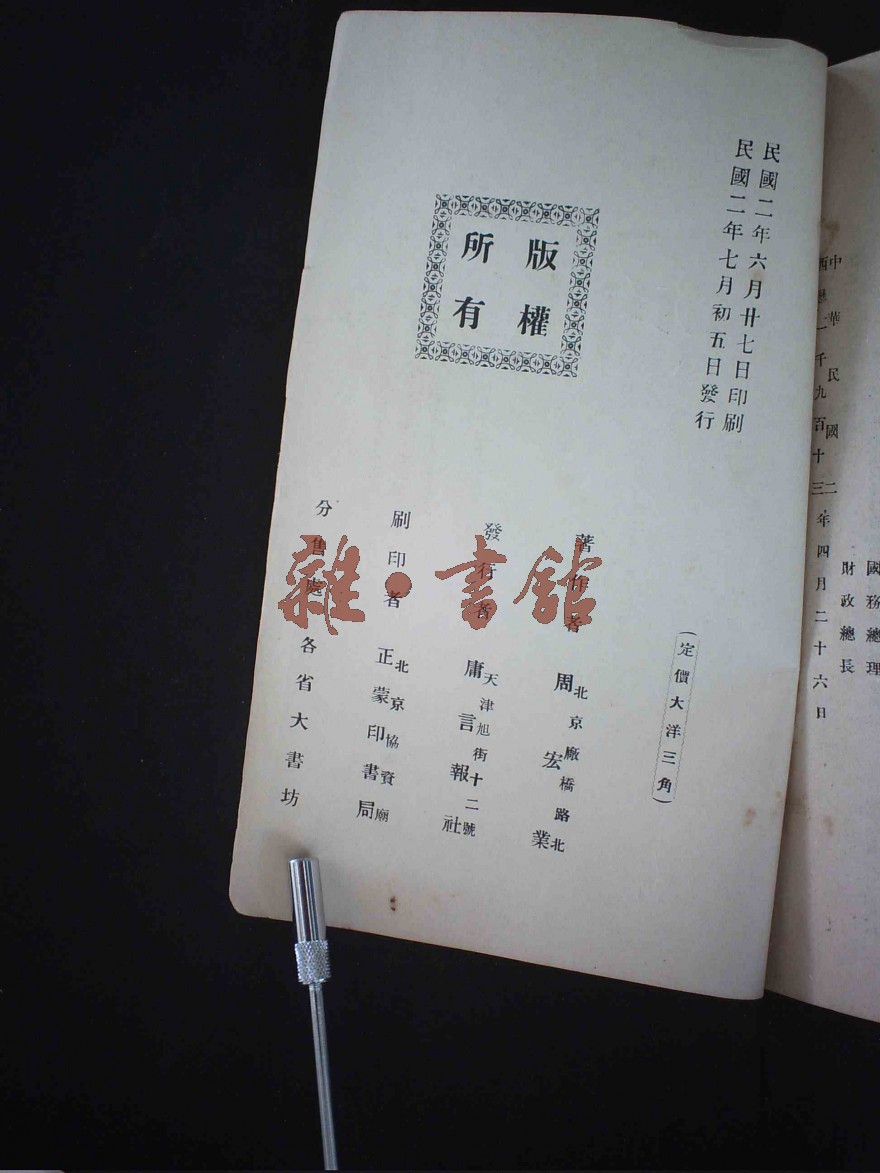 中華民國二
西曆一千九百十三年四月二十六日
國務總理
財政總長
民國二年六月廿七日印刷
民國二年七月初五日發行
版權
所有
(定價大洋三角)
著作者 北京廠橋路北 周宏業
發行者 天津旭街十二號 庸言報社
刷印者 北京協資廟 正蒙印書局
分售處 各省大書坊
雜·書館